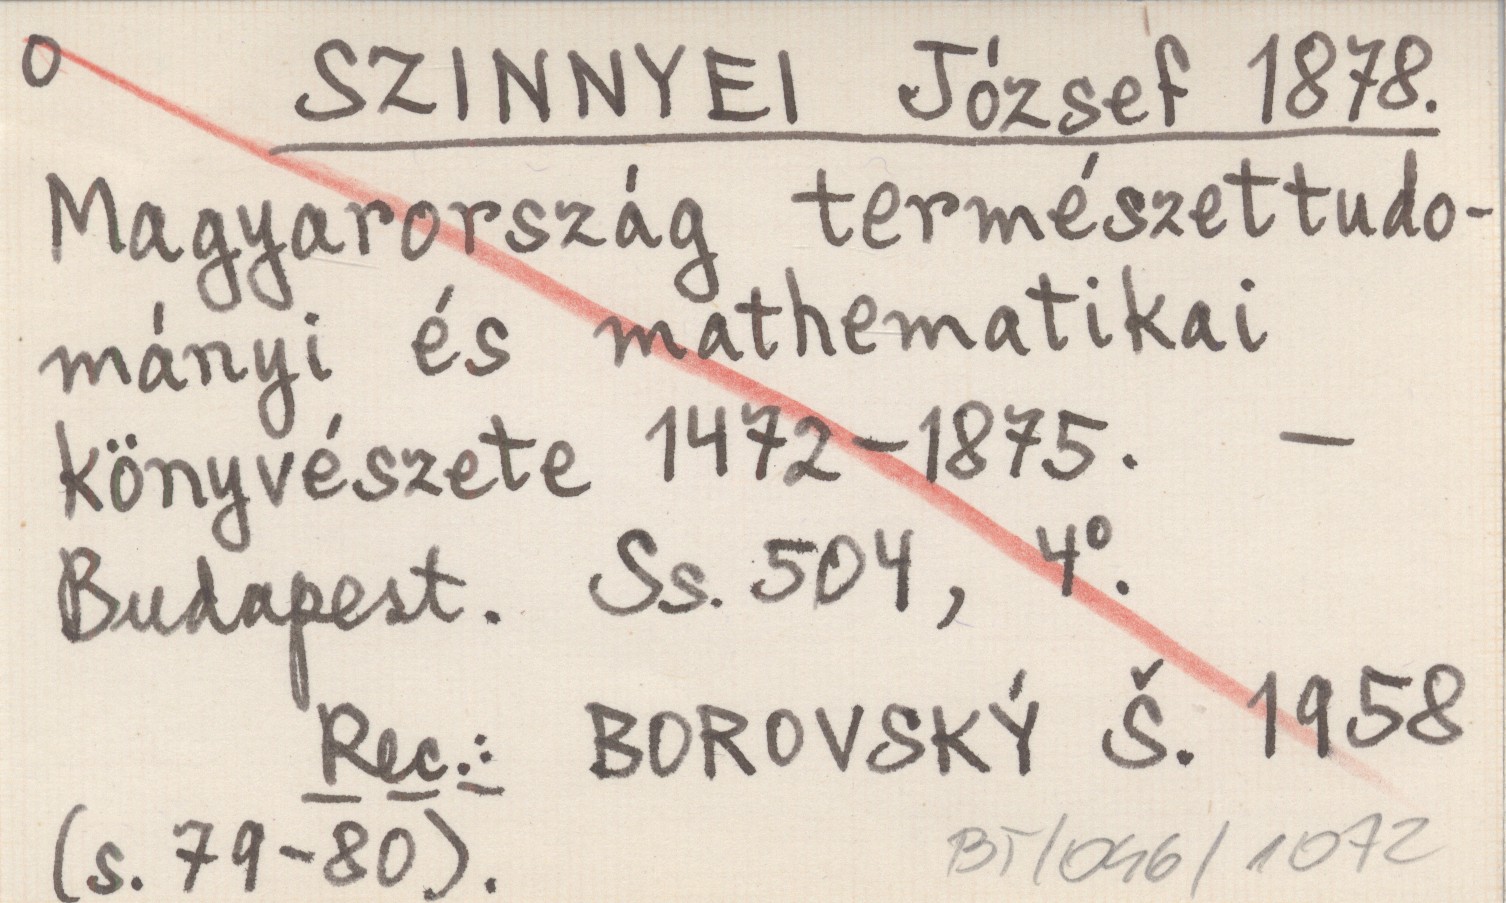 0 SZINNYEI József 1878.
Magyarország természettudo-
mányi és mathematikai
könyvészete 1472-1875. —
Budapest. Ss. 504, 4º.
Rec.: BOROVSKÝ Š. 1958
(s. 79-80).
BT/046/1072